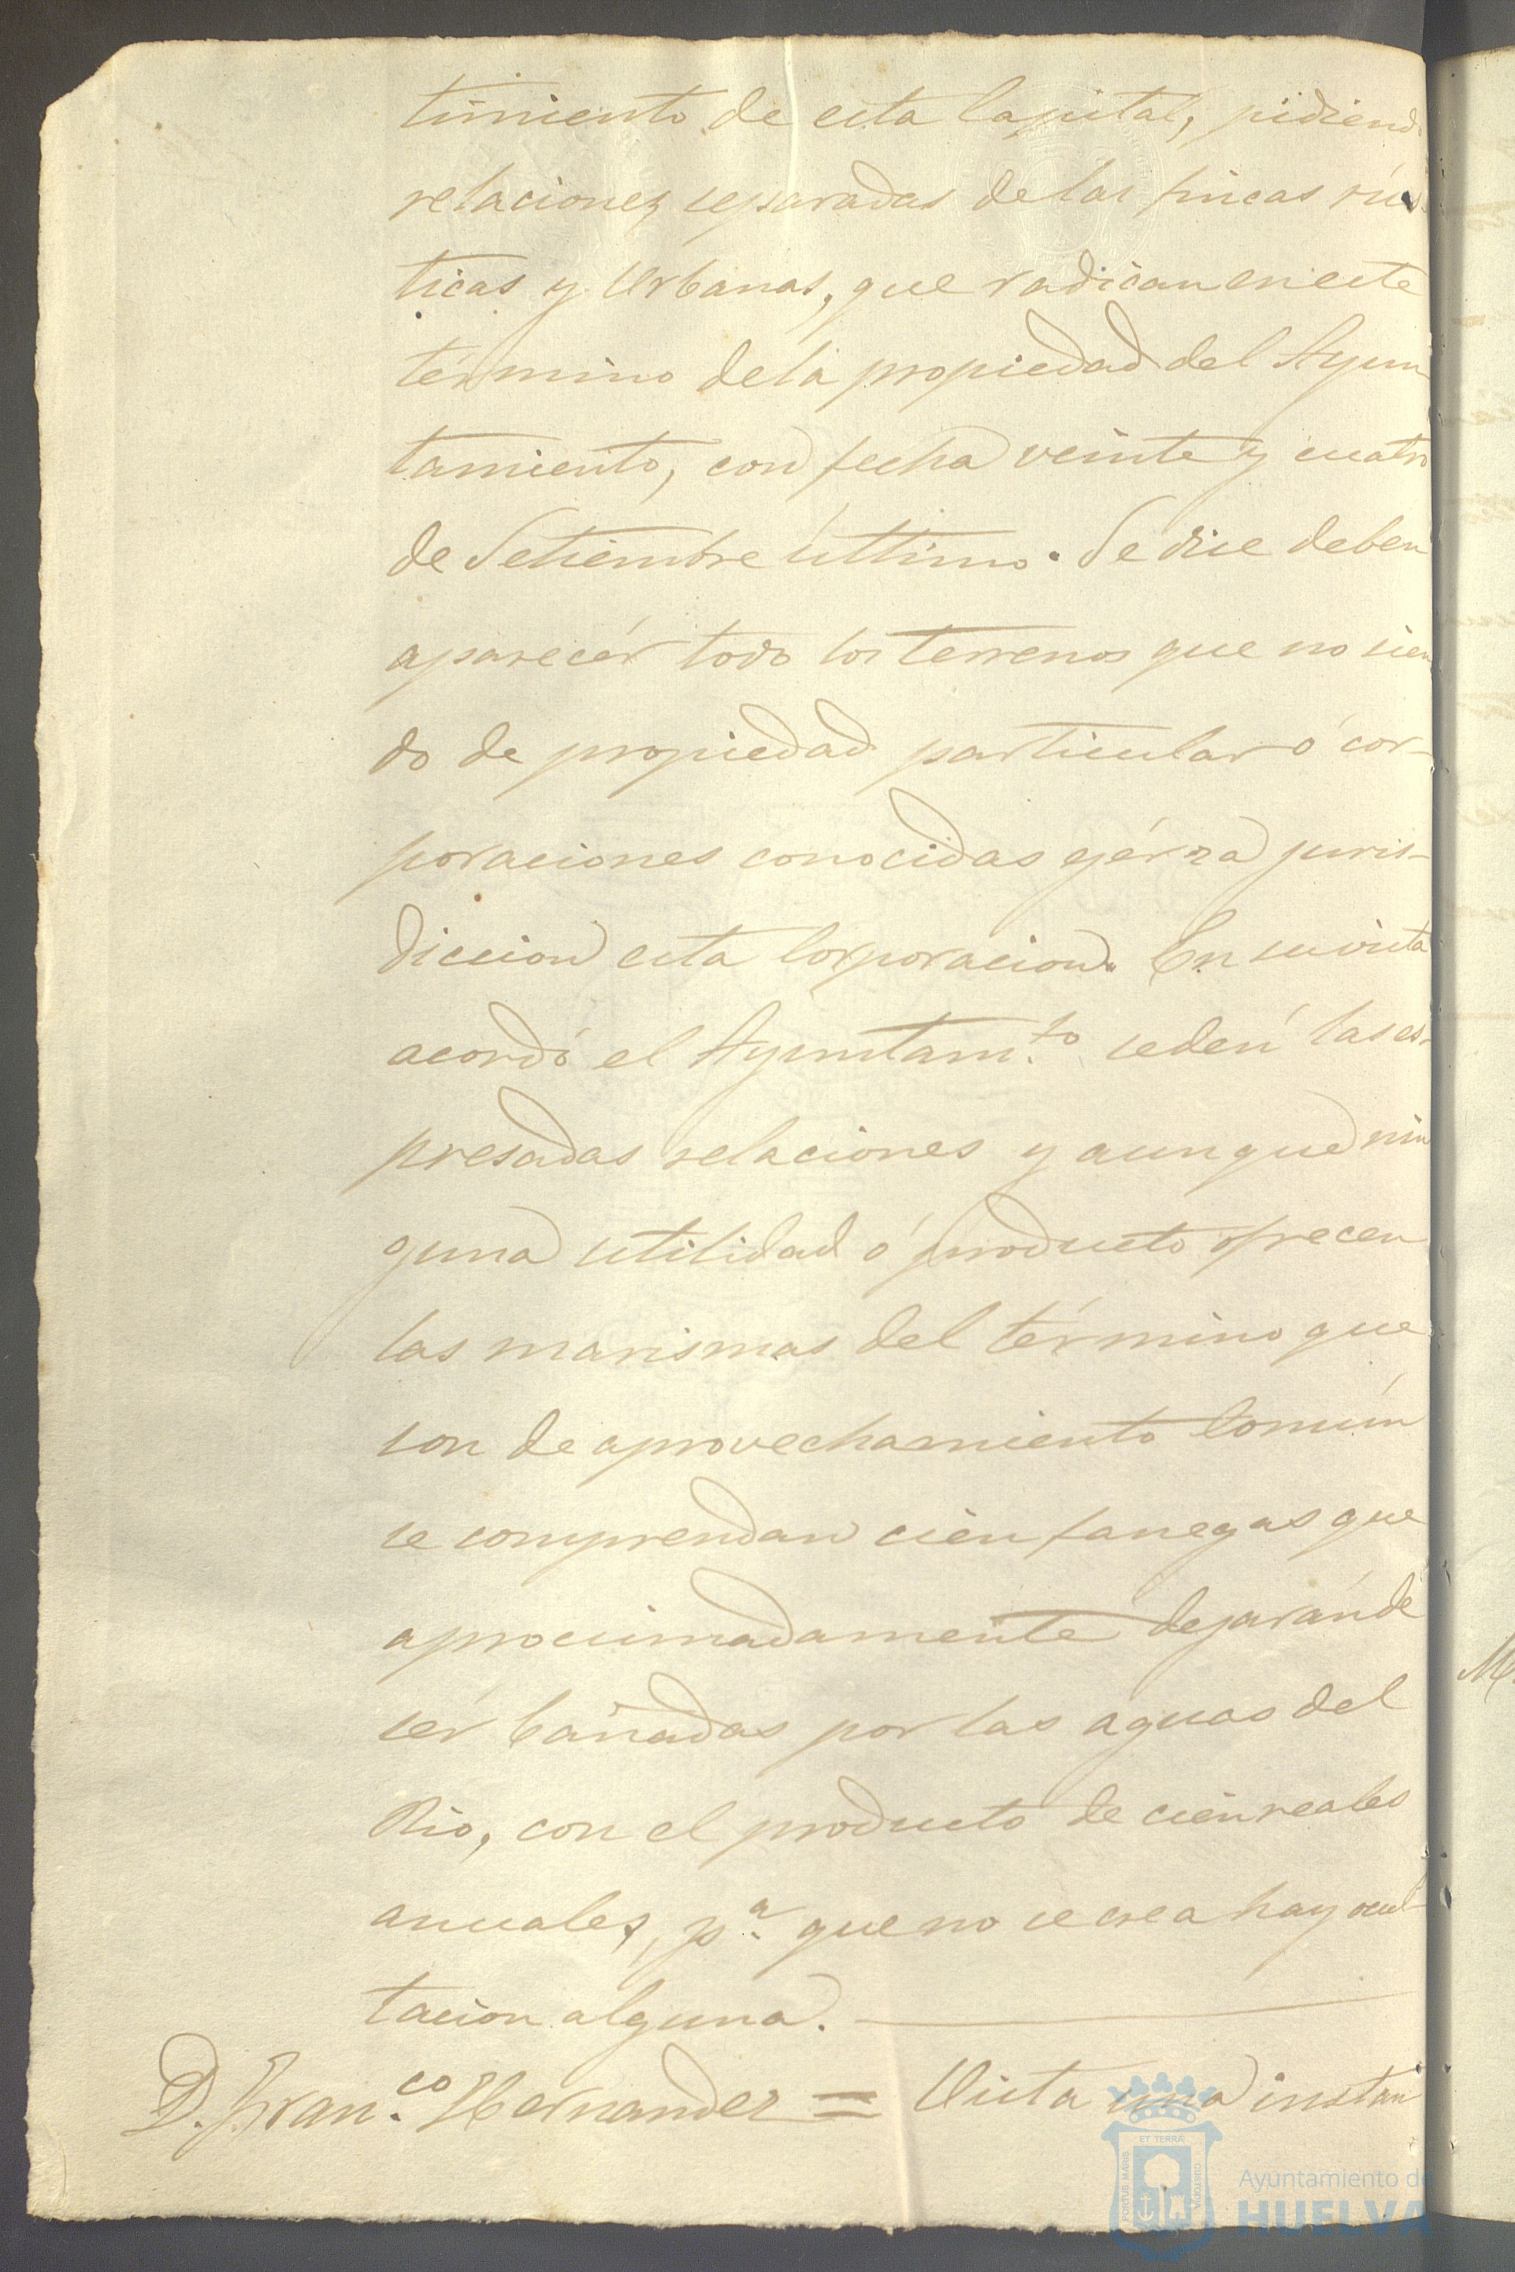 timiento de esta Capital, pidiendo
relaciones separadas de las fincas rús-
ticas y Urbanas, que radican en este
término de la propiedad del Ayun-
tamiento, con fecha veinte y cuatro
de Setiembre último. Se dice deben
aparecér todo los terrenos que no sien
do de propiedad particular ó cor-
poraciones conocidas ejérza juris-
diccion esta Corporacion. En su vista
acordó el Ayuntam.to se dén las es-
presadas relaciones y aunque nin
guna utilidad ó producto ofrecen
las marismas del término que
son de aprovechamiento Común
se comprendan cien fanegas que
aprocsimadamente dejarán de
sér bañadas por las aguas del
Rio, con el producto de cien reales
anuales, p.a que no se crea hay ocul-
tacion alguna.
D. Fran.co Hernandez = Vista una instan
ET TERRÆ
PORTUS MARIS
CUSTODIA
Ayuntamiento de
HUELVA